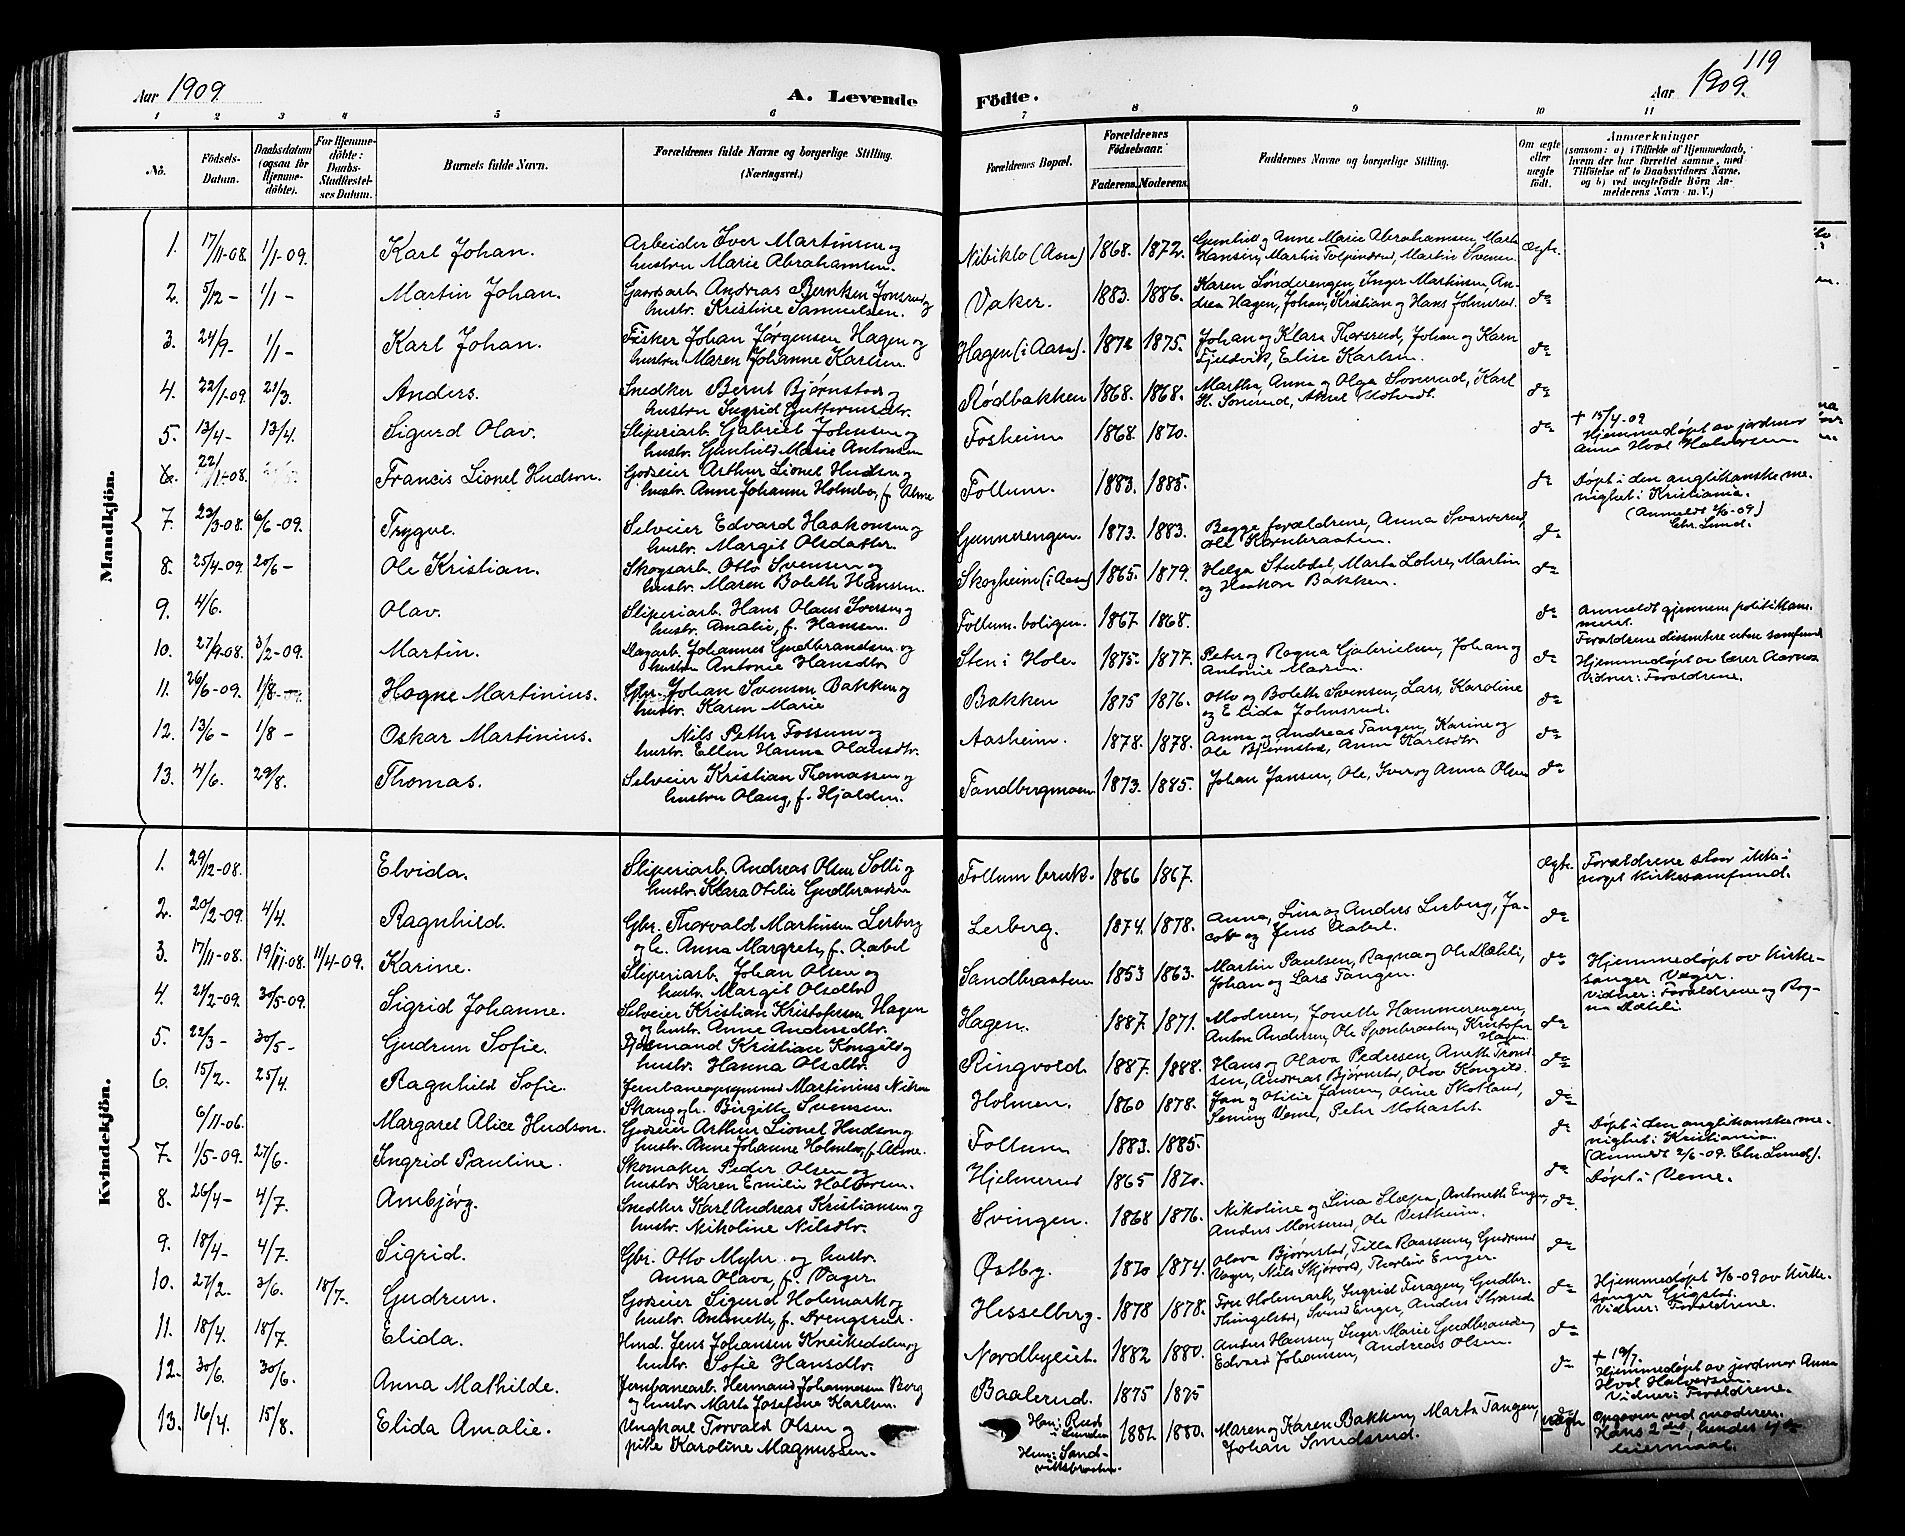 119
Aar 1909. A. Levende Födte. Aar 1909.
1 2 3 4 5 6 7 8 9 10 11
No. Födsels-Datum. Daabsdatum (ogsaa for Hjemme-döbte). For Hjemme-döbte: Daabs-Stadfæstelses Datum. Barnets fulde Navn. Forældrenes fulde Navne og borgerlige Stilling. (Næringsvei.) Forældrenes Bopæl. Forældrenes Födselsaar. Faderens. Moderens. Faddernes Navne og borgerlige Stilling. Om ægte eller uægte født. Anmærkninger (saasom: a) i Tilfælde af Hjemmedaab, hvem der har forrettet samme, med Tilföielse af to Daabsvidners Navne, og b) ved uægtefödte Börn Anmelderens Navn m. V.)
Mandkjön.
1. 17/11-08. 1/1-09. Karl Johan. Arbeider Iver Martinsen og hustru Marie Abrahamsen. Nibiklo (Aasa) 1868. 1872. Gunhild og Anne Marie Abrahamsen, Marta Hansen, Martin Tolpinrud, Martin Svensen. Ægte.
2. 5/12 - 1/1 - Martin Johan. Gaardsarb. Andreas Berntsen Jonsrud og hustr. Kristine Samuelsen. Vaker. 1883. 1886. Karen Sønderengen, Inger Martinsen, Andrea Hagen, Johan, Kristian og Hans Johnsrud. do
3. 24/9 - 1/1 - Karl Johan. Fisker Johan Jørgensen Hagen og hustru Maren Johanne Karlsen. Hagen (i Aasa). 1872 1875. Johan og Klara Thorsrud, Johan og Karn Fjeldvik, Elise Karlsen. do
4. 22/1-09. 21/3. Anders. Snedker Bernt Bjørnstad og hustru Ingrid Guttormsdtr. Rødbakken 1868. 1868. Martha, Anna og Olga Sonerud, Karl H. Sonerud, do
5. 13/4- 13/4. Sigurd Olav. Sliperiarb. Gabriel Johnsen og hustr. Gunhild Marie Antonsen Fosheim 1868. 1870. do + 15/4-09 Hjemmedøpt av jordmor Anna Hval Halvorsen.
6. 22/1-08. Francis Lionel Hudson. Godseier Arthur Lionel Hudson og hustr. Anne Johanne Holmboe, f. Alme Follum. 1883. 1885. do Døpt i den anglikanske menighet i Kristiania. (Anmeldt 2/6-09) Chr. Lund.
7. 23/3-08. 6/6-09. Trygve. Selveier Edvard Haakonsen og hustr. Margit Olsdatter. Gunnerengen. 1873. 1883. Begge forældrene, Anna Svarverud, Ole Kornbraaten. do
8. 25/4-09. 20/6- Ole Kristian. Skogsarb. Otto Svensen og hustr. Maren Boleth Hanssen. Skogheim (i Aasa) 1865. 1879. Helga Stubdal, Marta Lohre, Martin og Haakon Bakken. do
9. 4/6. Olav. Sliperiarb. Hans Olaus Iversen og hustr. Amalie, f. Hanssen. Follum. boligen. 1867 1868. do Anmeldt gjennem politikammeret. Forældrene dissentere uten samfund
10. 27/9-08. 3/2-09. Martin. Dagarb. Johannes Gudbrandsen og hustru Antonie Hansdtr Sten i Hole 1875. 1877. Peter og Ragna Gabrielsen, Johan og Antonie Madsen. do Hjemmedøpt av lærer Aarnes Vidner: Forældrene.
11. 26/6-09. 1/8- Hogne Martinius. Gbr. Johan Svensen Bakken og hustr. Karen Marie Bakken 1875 1876. Otto og Boleth Svensen, Lars, Karoline og Elida Johnsrud. do
12. 13/6- 1/8- Oskar Martinius. Nils Petter Fossum og hustr. Ellen Hanna Olausdtr. Aasheim. 1878. 1878. Anna og Andreas Tangen, Karine og Ole Bjørnstad, Anna Karlsdtr. do
13. 4/6. 29/8. Thomas. Selveier Kristian Thomassen og hustru Olaug, f. Hjalden. Tandbergmoen 1873. 1885. Johan Jansen, Ole, Iver og Anna Olsen do
Kvindekjön.
1. 29/12-08. Elvida. Sliperiarb. Andreas Olsen Solli og hustr. Klara Otilie Gudbrandsen Follum bruk. 1866 1867. Ægte. Forældrene staar ikke i noget kirkesamfund.
2. 20/2-09. 4/4. Ragnhild. Gbr. Thorvald Martinsen Lerberg og h. Anna Margrete, f. Aabel Lerberg. 1874. 1878. Anna, Lina og Anders Lerberg, Jacob og Jens Aabel. do
3. 17/11-08. 19/11-08. 11/4-09. Karine. Sliperiarb. Johan Olsen og hustr. Margit Olsdtr. Sandbraaten 1853 1863. Martin Paulsen, Ragna og Ole Mæhli, Johan og Lars Tangen. do Hjemmedøpt av kirkesanger Vager. vidner: Forældrene og Ragna Mæhli
4. 21/2-09. 30/5-09. Sigrid Johanne. Selveier Kristian Kristofersen Hagen og hustr. Anne Andersdtr. Hagen. 1887. 1871. Moderen, Jonette Hammerengen, Anton Andersen, Ole Sponbraaten, Kristofer Hagen. do
5. 22/3- 30/5- Gudrun Sofie. Fjøsmand Kristian Kongild og hustr. Hanna Olsdtr. Ringvold. 1887. 1888. Hans og Olava Pedersen, Anette Trondsen, Andreas Bjørnstad, Olav Kongild. do
6. 15/2. 25/4. Ragnhild Sofie. Jernbaneopsynsmd Martinius Nilsen Skaug og h. Birgitte Svensen. Holmen. 1860 1878. Jan og Otilie Jansen, Oline Skotland, Peter Mokastet. do
6/11-06. Margaret Alice Hudson. Godseier Arthur Lionel Hudson og hustr. Anne Johanne Holmboe, f. Alme. Follum 1883. 1885. do Døpt i den anglikanske menighet i Kristiania. (Anmeldt 2/6-09. Chr. Lund).
7. 1/5-09. 27/6. Ingrid Pauline. Skomaker Peder Olsen og hustr. Karen Emilie Halvorsen. Hjelmerud 1865 1870. do Døpt i Veme.
8. 26/4- 4/7. Ambjørg. Snedker Karl Andreas Kristiansen og hustr. Nikoline Nilsdtr. Svingen. 1868 1876. Nikoline og Lina Slæpa, Antonette Enger, Anders Monserud, Ole Vestheim. do
9. 18/4- 4/7. Sigrid. Gbr. Otto Myhr og hustr. Anna Olava, f. Vager. Østby. 1870 1874. Olava Bjørnstad, Tilla Raassum, Gudmund Vager, Nils Skjørvold, Thorleiv Enger. do
10. 27/2. 3/6. 18/7. Gudrun. Godseier Sigurd Holmark og hustr. Annette, f. Drengsrud. Hesselberg. 1878 1878. Fru Holmark, Ingrid Feragen, Gudbr. Thingelstad, Svend Enger, Anders Strande do Hjemmedøpt 3/6-09 av kirkesanger Gigstad. Vidner: Forældrene.
11. 18/4. 18/7. Elida. Hmd. Jens Johansen Kneikedalen og hustr. Sofie Hansdtr. Nordbyeiet. 1882 1880. Anders Hansen, Inger Marie Gudbrandsen, Edvard Johansen, Andreas Olsen. do
12. 30/6. 30/6. Anna Mathilde. Jernbanearb. Herman Johannessen Berg og hustr. Marta Josefine Karlsen. Baalerud. 1875 1875 do + 19/7. Hjemmedøpt av jordmor Anna Hval Halvorsen. Vidner: Forældrene.
13. 16/4. 15/8. Elida Amalie. Ungkarl Torvald Olsen og pike Karoline Magnussen. Han: Rud i Lunder Hun: Sandviksbraaten. 1882 1880. Maren og Karen Bakken, Marta Tangen, Johan Smedsrud. uægte Opgaven ved moderen. Hans 2det, hendes 1ste leiermaal.